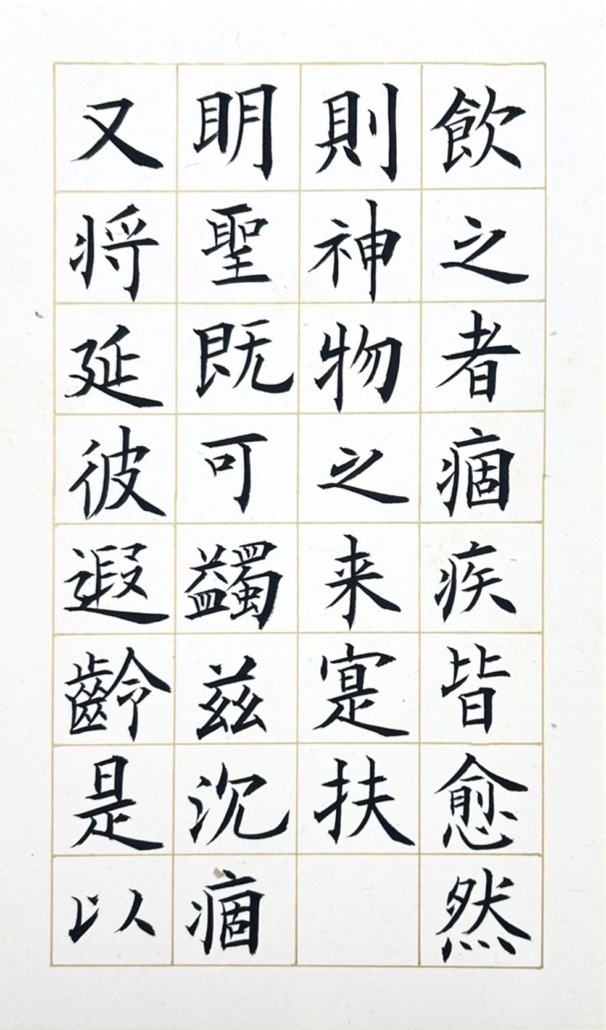 飲之者痼疾皆愈然
則神物之来寔扶
明聖既可蠲兹沉痼
又将延彼遐齡是以